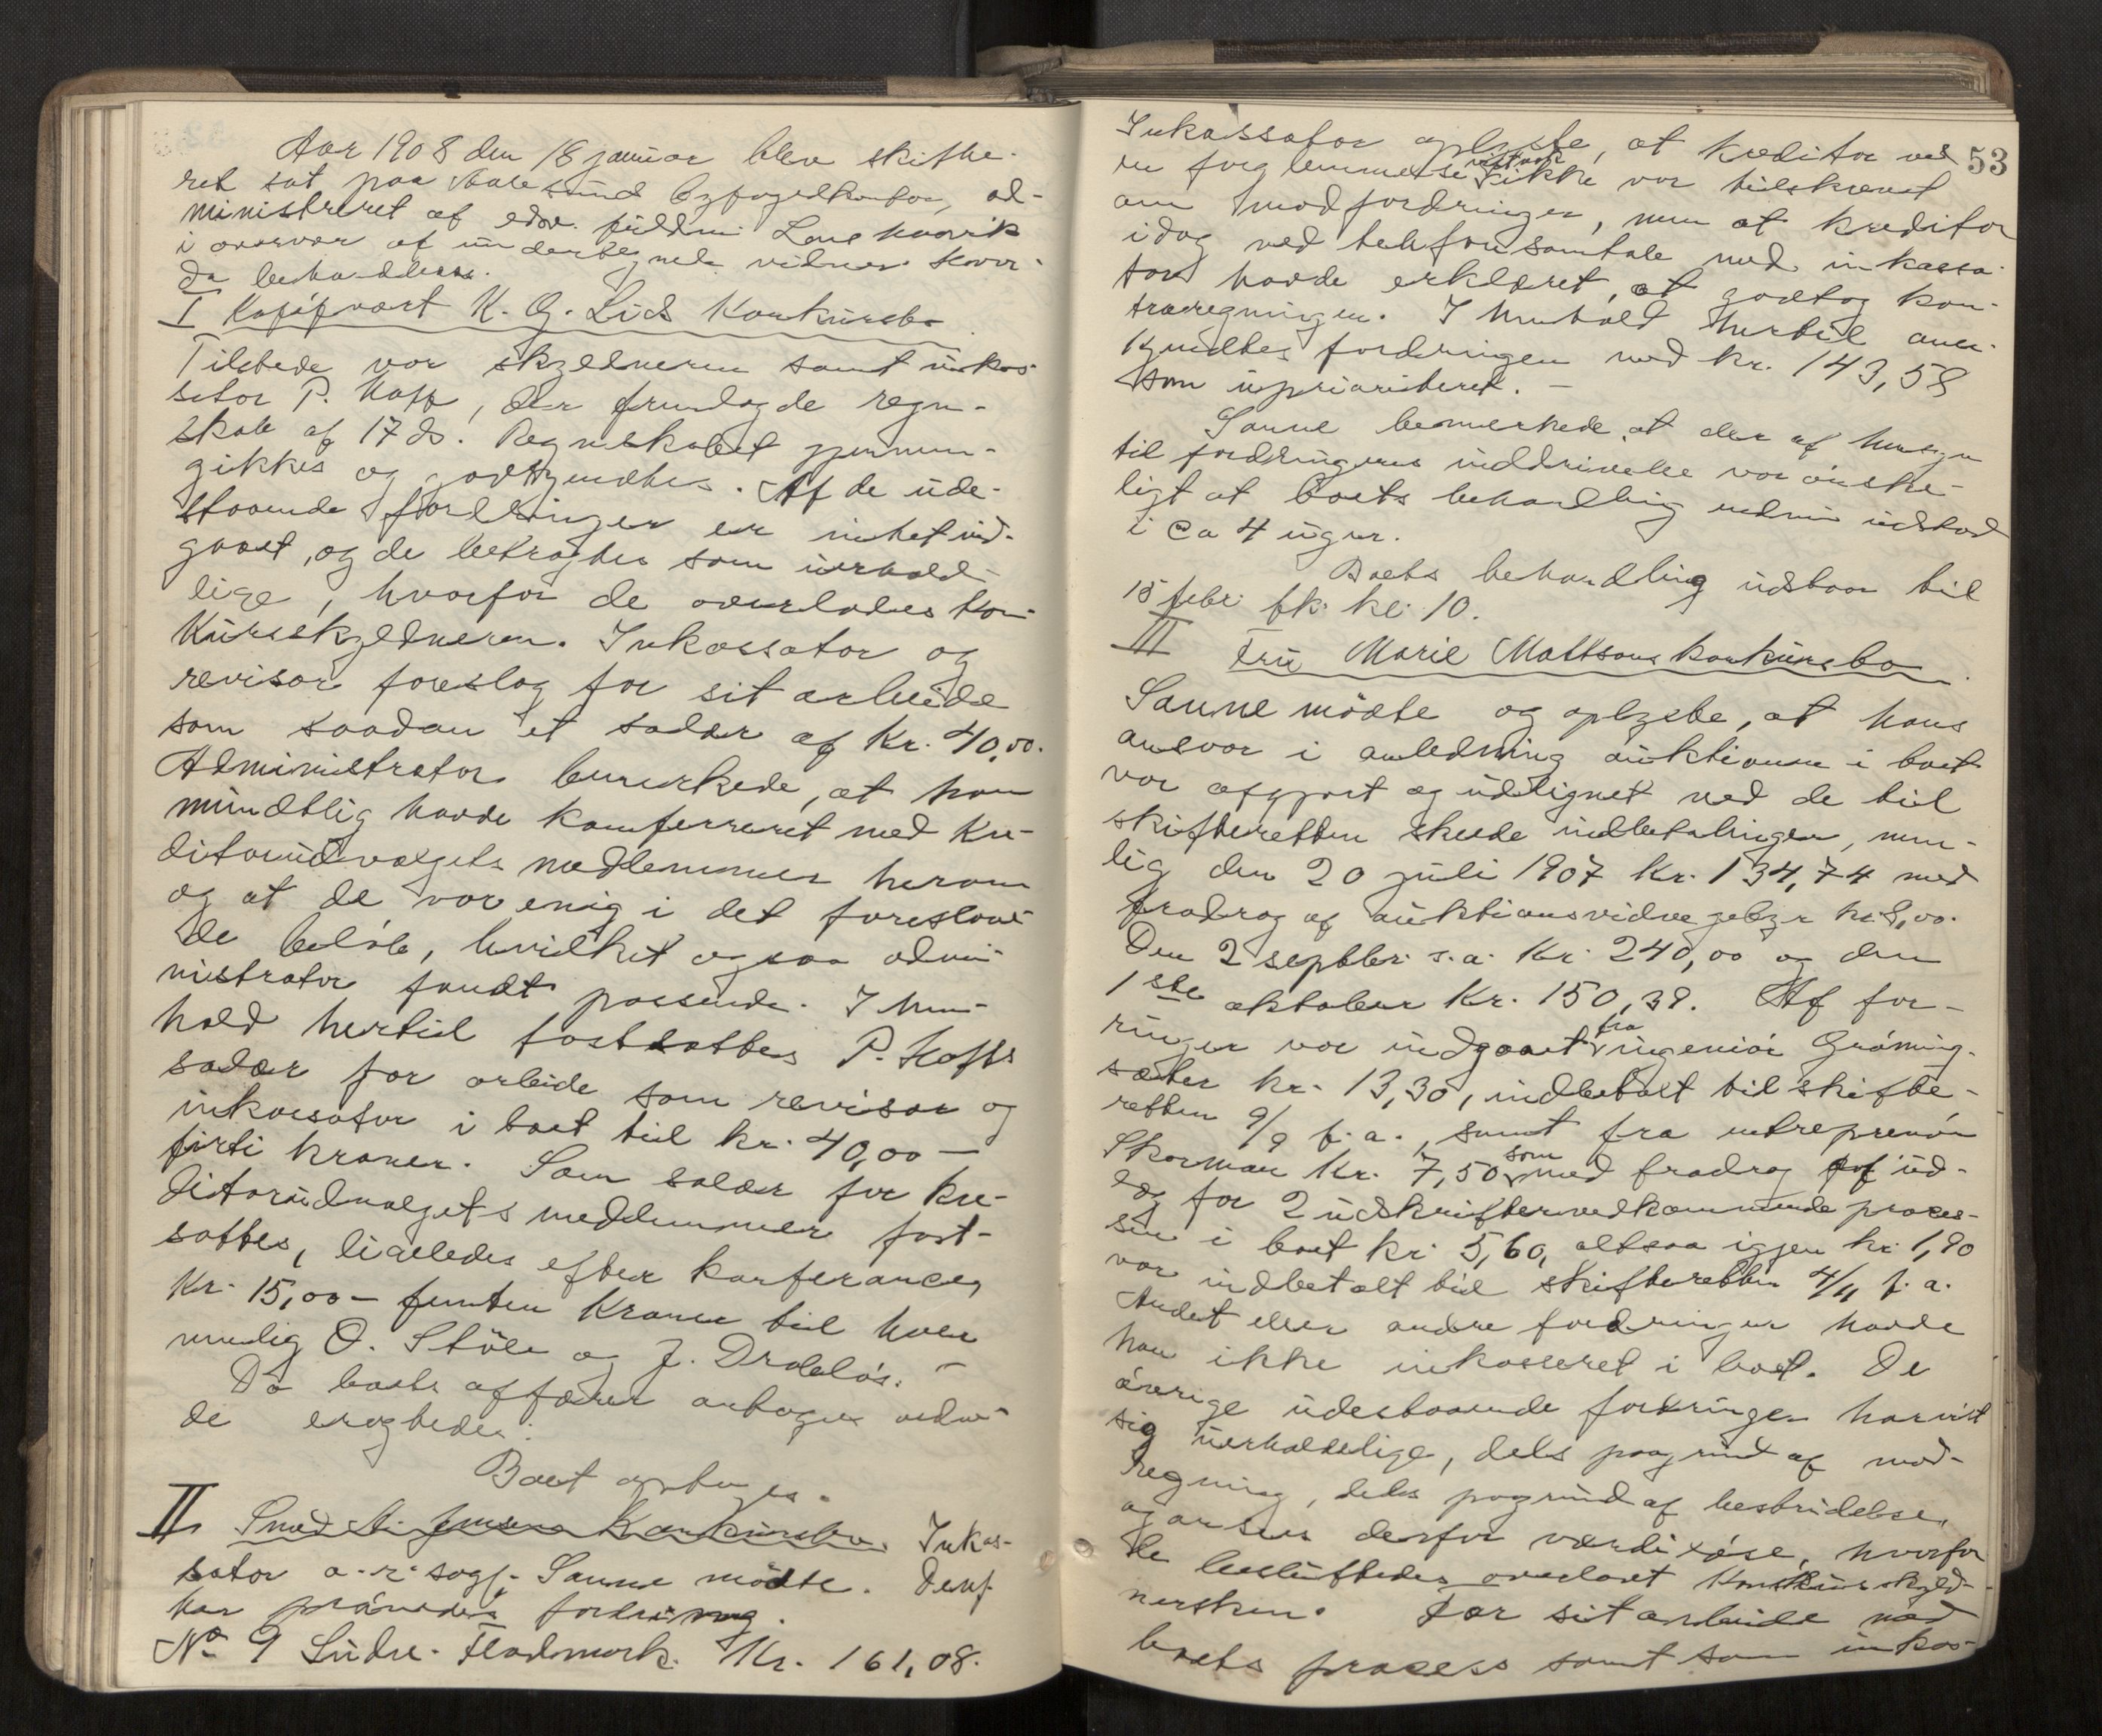 Aar 1908 den 18 januar blev skifte-
ret sat paa Aalesund byfogedkontor, ad-
ministreret af edsv. fuldm. Langhaarik
i overvær af undertegnede vidner. Hvor-
da behandledes.
I Kapt. K. G. Lids Konkursbo
Tilstede var skyldneren samt inkas-
sator P. Hoff, der fremlagde regn-
skab af 17 ds. Regnskabet gjennem-
gikkes og godkjendtes. Af de ude-
staaende fordringer er intet ind-
gaaet, og de betragtes som uerhold-
lige, hvorfor de overlades kon-
kursskyldneren. Inkassator og
revisor foreslog for sit arbeide
som saadan et salær af Kr. 40,00.
Administrator bemerkede, at han
mundtlig havde konfereret med Kre-
ditorudvalgets medlemmer herom
og at de var enig i det foreslaae-
de beløb, hvilket ogsaa admi-
nistrator fandt passende. I hen-
hold hertil fastsattes P. Hoffs
salær for arbeide som revisor og
inkassator i boet til kr. 40,00 —
firti kroner. Som salær for kre-
ditorudvalgets medlemmer fast-
sattes, ligeledes efter konferance,
Kr. 15,00 — femten Kroner til hver
nemlig O. Støle og J. Drabløs. —
Da boets affærer antoges ende-
de
Boet optoges.
II Smed Jensens Konkursbo. Inkas-
sator o.r. sagf. Sanne mødte. Denf.
har prøvedes fordring.
No 9 Lindre. Flodmark. Kr. 161,08.
53
Inkassator oplyste, at kreditor ved
en forglemmelse vistnok ikke var tilskrevet
om modfordringen, men at kreditor
idag ved telefonsamtale med inkassa-
tor havde erklæret, at godtog kon-
traregningen. I henhold hertil aner-
kjendtes fordringen med kr. 143,58
som uprioriteret. —
Sanne bemerkede, at der af hensyn
til fordringers inddrivelse var ønske-
ligt at boets behandling endnu udstod
i ca 4 uger.
Boets behandling udstaar til
15 febr. fk. kl. 10.
III Fru Marie Mattsons konkursbo.
Sanne mødte og oplyste, at hans
ansvar i anledning auktionen i boet
var afgjort og udlignet ved de til
skifteretten skede indbetalinger, nem-
lig den 20 juli 1907 Kr. 134,74 med
fradrag af auktionsvidnegebyr kr. 8,00.
Den 2 septbr. s.a. Kr. 240,00 og den
1ste oktober Kr. 150,38. Af for-
ringer var indgaaet fra ingeniør Grøning-
sæter kr. 13,30, indbetalt til skifte-
retten 9/9 f.a., samt fra entreprenør
Skarman Kr. 7,50 som med fradrag af ud-
læg for 2 udskrifter vedkommende proces-
sen i boet kr. 5,60, altsaa igjen kr. 1,90
var indbetalt til skifteretten 4/11 f.a.
Andet eller andre fordringer havde
han ikke inkasseret i boet. De
øvrige udestaaende fordringer har vist
sig uerholdelige, dels paagrund af mod-
regning, dels pagrund af bestridelse,
og ansees derfor værdiløse, hvorfor
de besluttedes overladt konkursskyld-
nersken. For sit arbeide med
boets process samt som inkas-